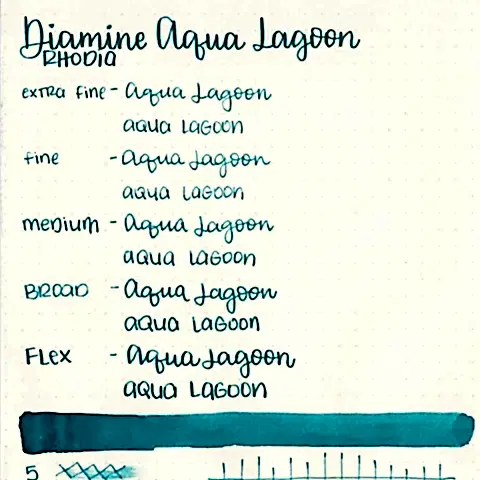 Diamine Aqua Lagoon
RHODIA
extra fine - Aqua Lagoon
AQUA LAGOON
fine - Aqua Lagoon
AQUA LAGOON
medium - Aqua Lagoon
AQUA LAGOON
BROAD - Aqua Lagoon
AQUA LAGOON
FLEX - Aqua Lagoon
AQUA LAGOON
5